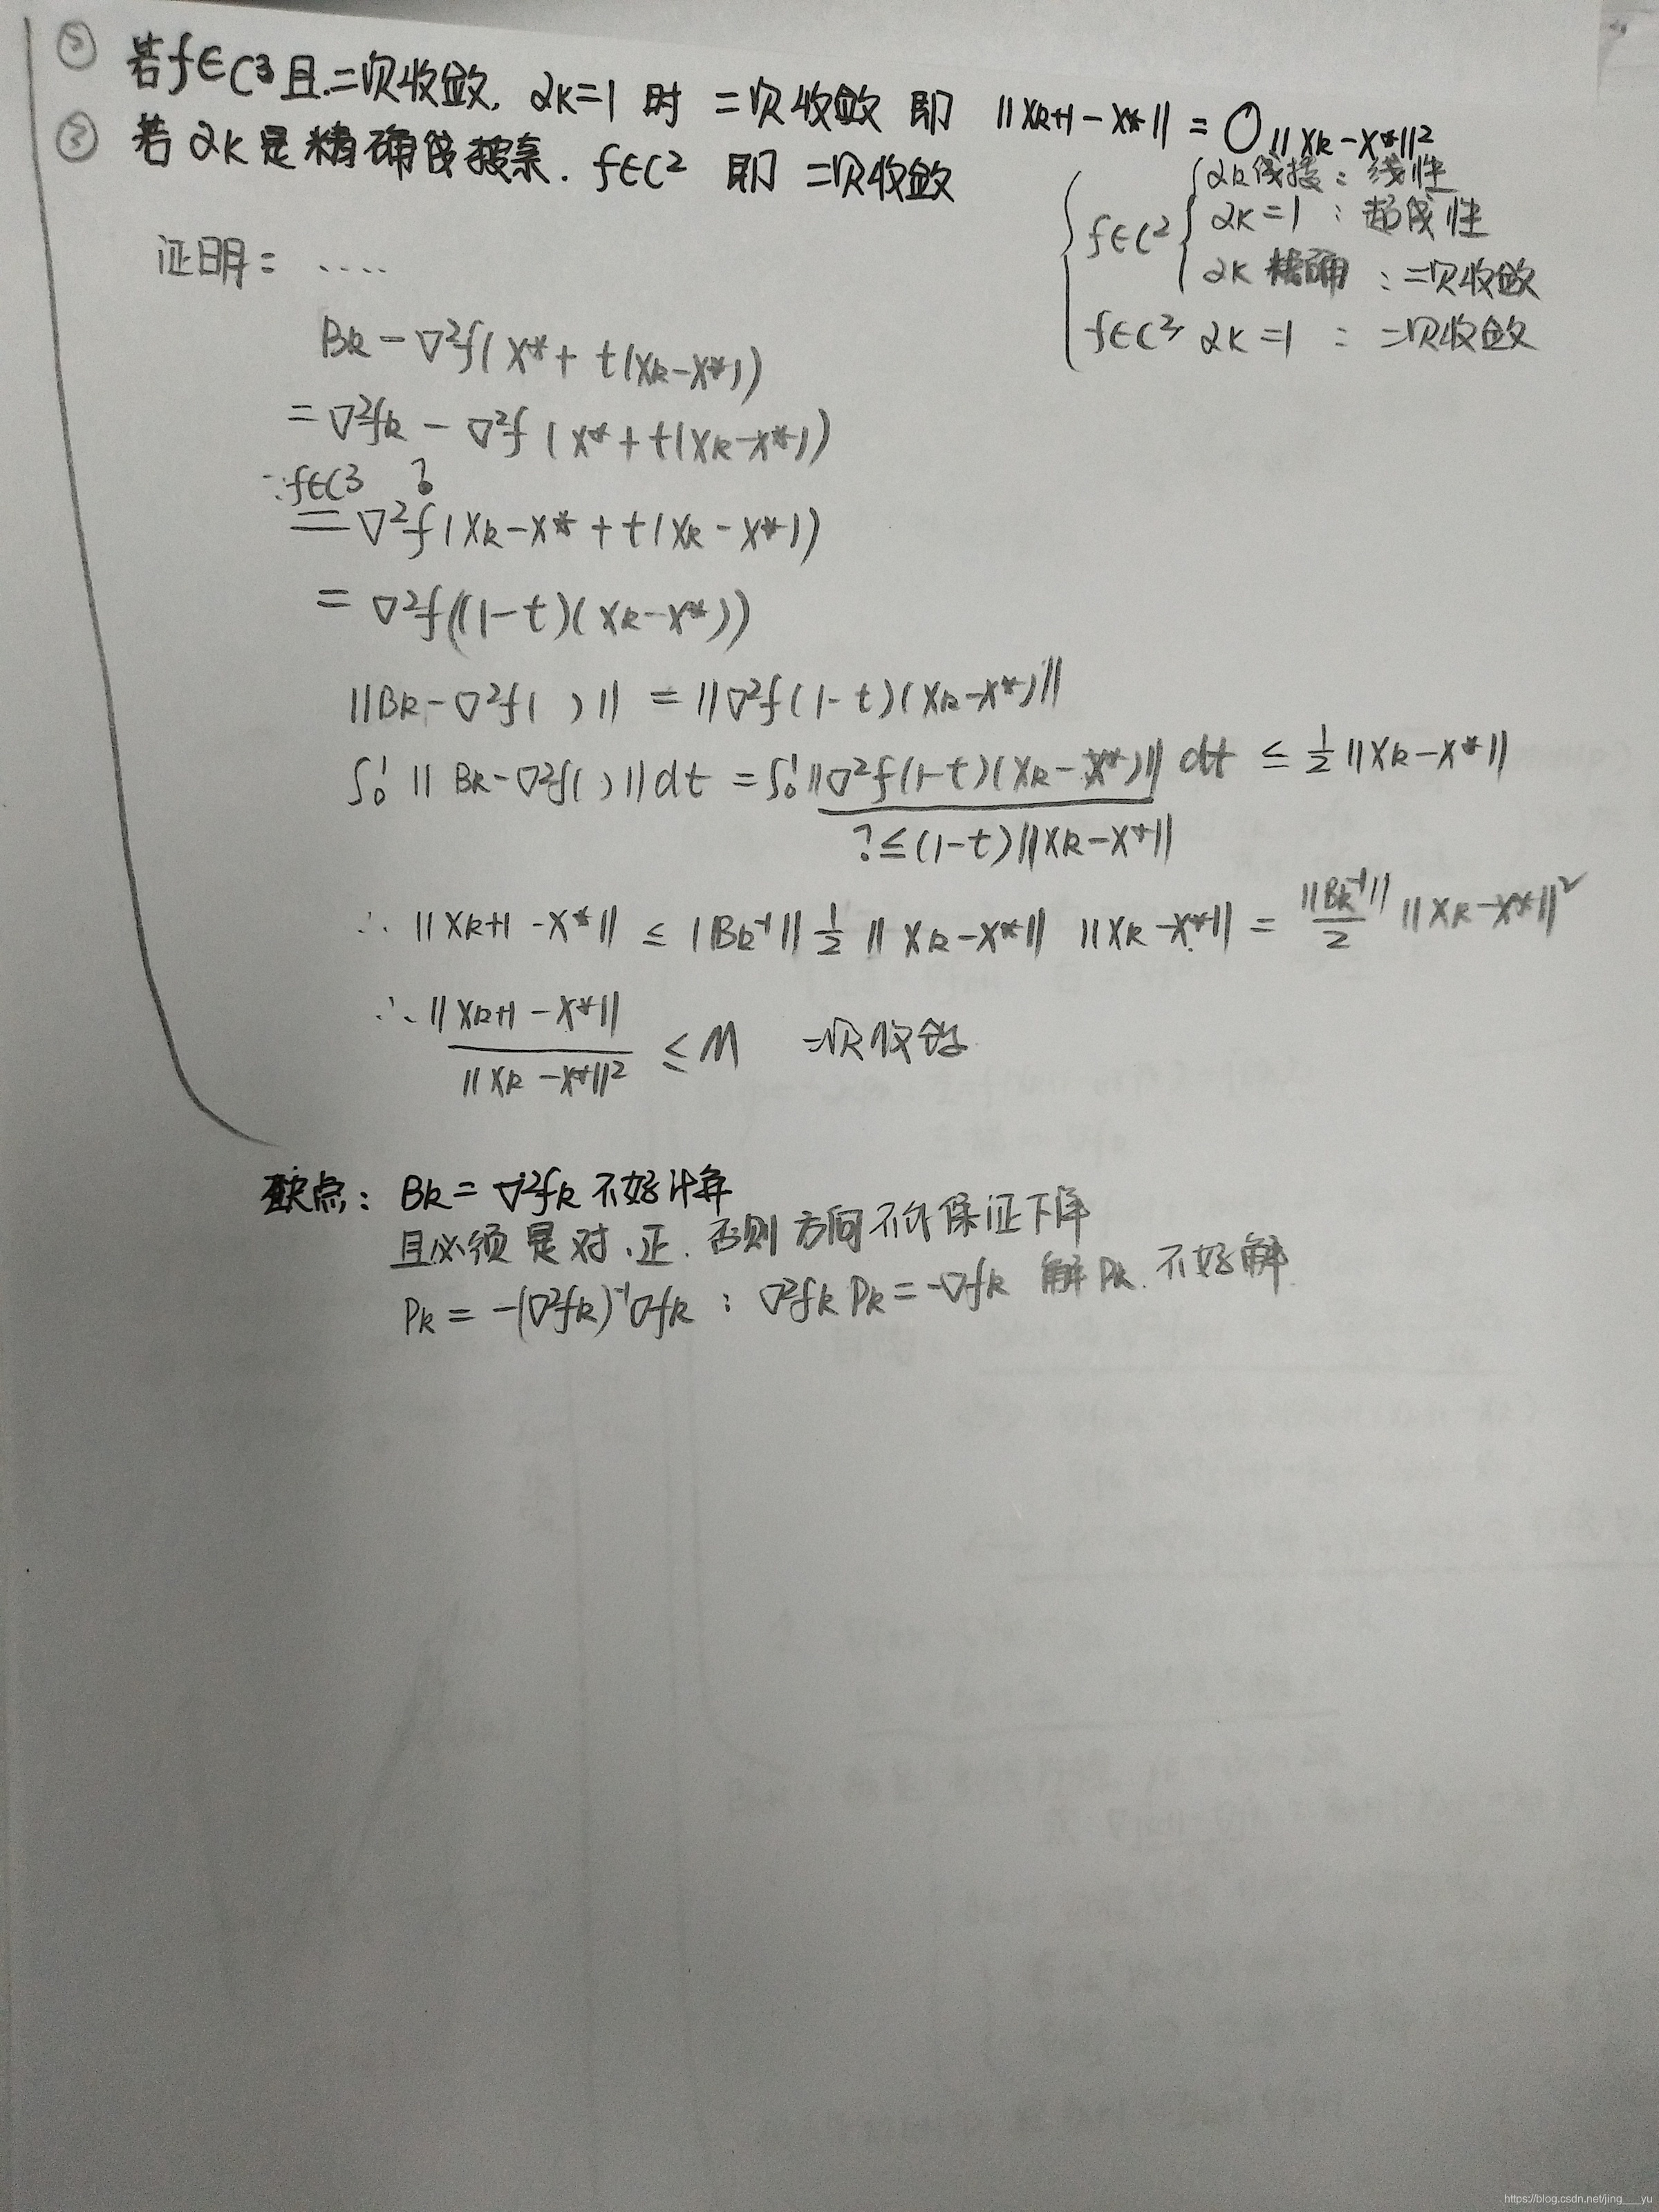 ② 若f∈C³且二次收敛, αk=1 时 二次收敛 即 ||Xk+1 - X*|| = O||Xk-X*||²
③ 若 αk 是精确线搜索. f∈C² 即 二次收敛
f∈C² { αk线搜: 线性
αk=1 : 超线性
αk 精确 : 二次收敛
f∈C³ αk=1 : 二次收敛
证明: ....
Bk - ∇²f(X*+t(Xk-X*))
= ∇²fk - ∇²f(X*+t(Xk-X*))
∵f∈C3 ?
= ∇²f(Xk-X*+t(Xk-X*))
= ∇²f((1-t)(Xk-X*))
||Bk-∇²f( )|| = ||∇²f(1-t)(Xk-X*)||
∫₀¹ ||Bk-∇²f( )||dt = ∫₀¹||∇²f(1-t)(Xk-X*)|| dt ≤ ½||Xk-X*||
?≤(1-t)||Xk-X*||
∴ ||Xk+1-X*|| ≤ ||Bk⁻¹|| ½ ||Xk-X*|| ||Xk-X*|| = ||Bk⁻¹||/2 ||Xk-X*||²
∴ ||Xk+1-X*||/||Xk-X*||² ≤ M 二次收敛
缺点: Bk = ∇²fk 不好计算
且必须是对.正. 否则方向不能保证下降
Pk = -(∇²fk)⁻¹∇fk : ∇²fk Pk = -∇fk 解Pk. 不好解.
https://blog.csdn.net/jing___yu